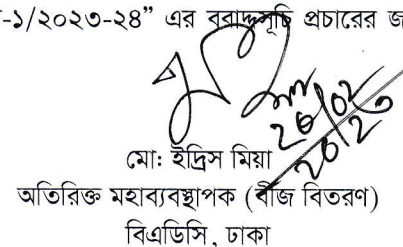 -১/২০২৩-২৪” এর বরাদ্দসূচি প্রচারের জ
মোঃ ইদ্রিস মিয়া
অতিরিক্ত মহাব্যবস্থাপক (বীজ বিতরণ)
বিএডিসি, ঢাকা